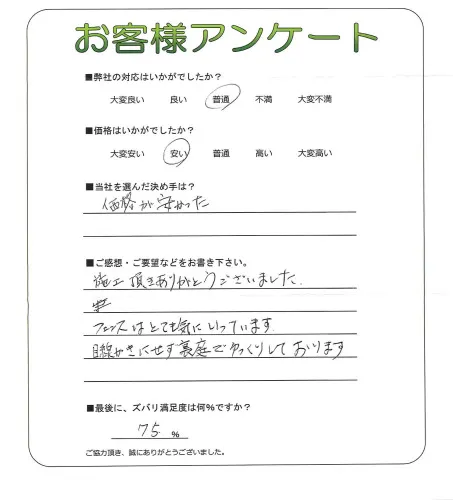 お客様アンケート
■弊社の対応はいかがでしたか?
大変良い 良い 普通 不満 大変不満
■価格はいかがでしたか?
大変安い 安い 普通 高い 大変高い
■当社を選んだ決め手は?
価格が安かった
■ご感想・ご要望などをお書き下さい。
施工頂きありがとうございました.
フェンスはとても気にいっています
目線がきにせず裏庭でゆっくりしております
■最後に、ズバリ満足度は何%ですか?
75 %
ご協力頂き、誠にありがとうございました。